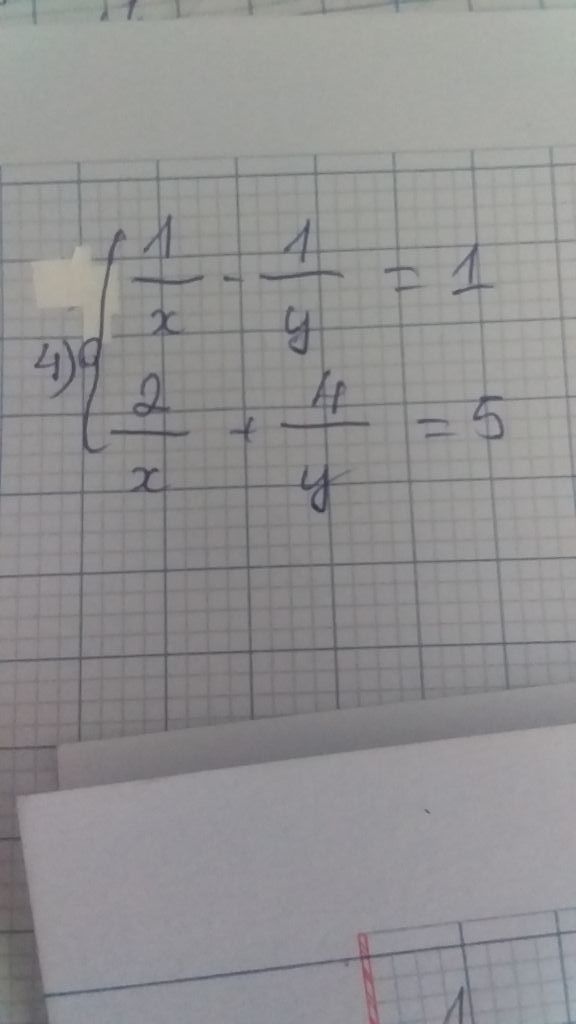 4) { 1/x - 1/y = 1
2/x + 4/y = 5
1